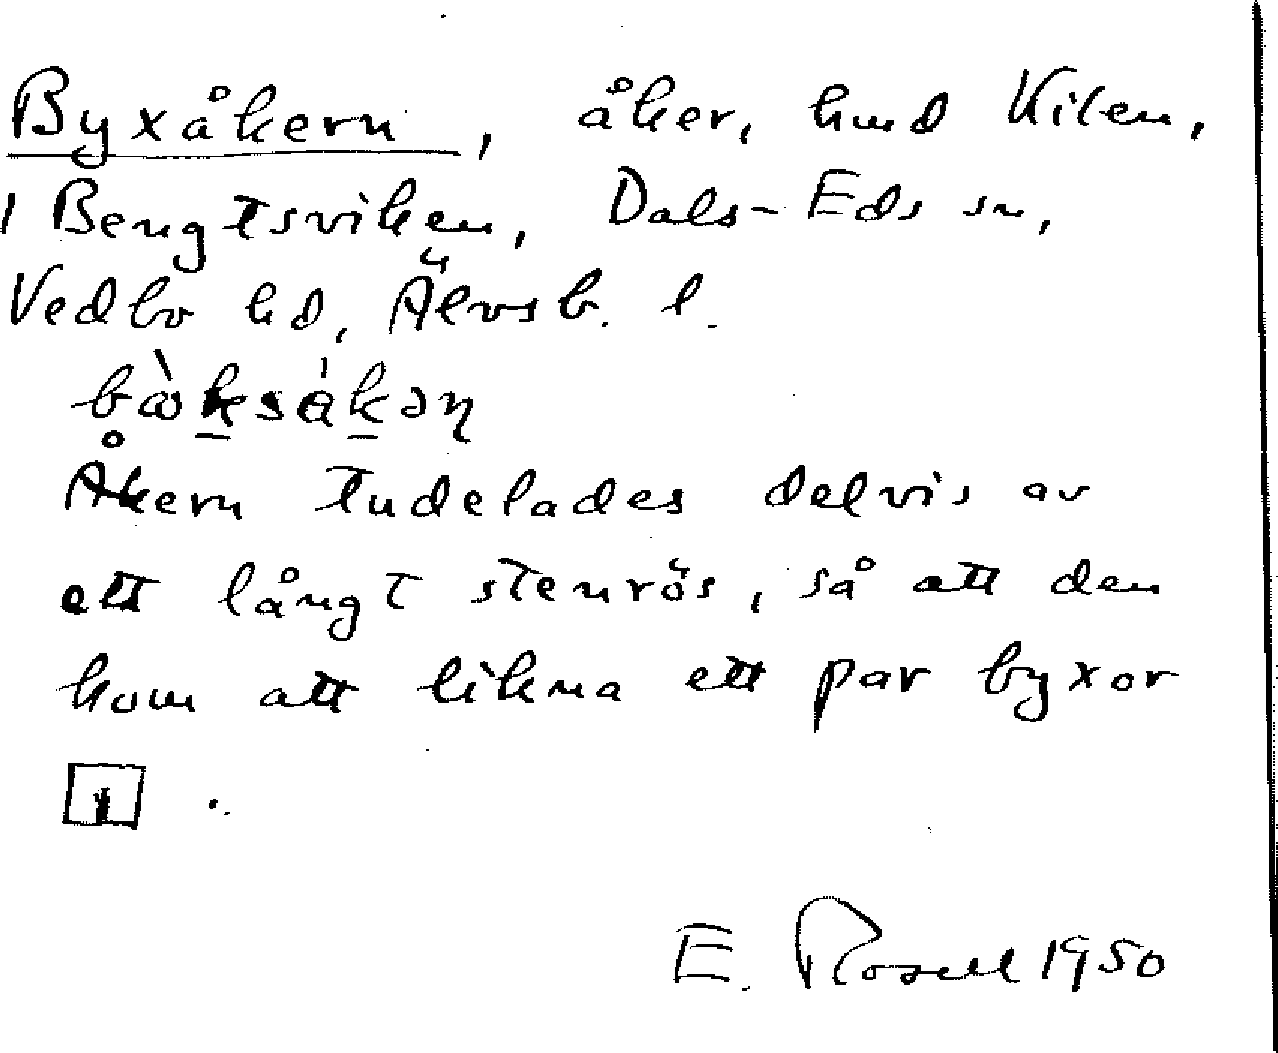 Byxåkern, åker, hmd Kilen,
1 Bengtsviken, Dals-Eds sn,
Vedbo hd, Älvsb. l.
Åkern tudelades delvis av
ett långt stenrös, så att den
kom att likna ett par byxor
.
E. Rosell 1950